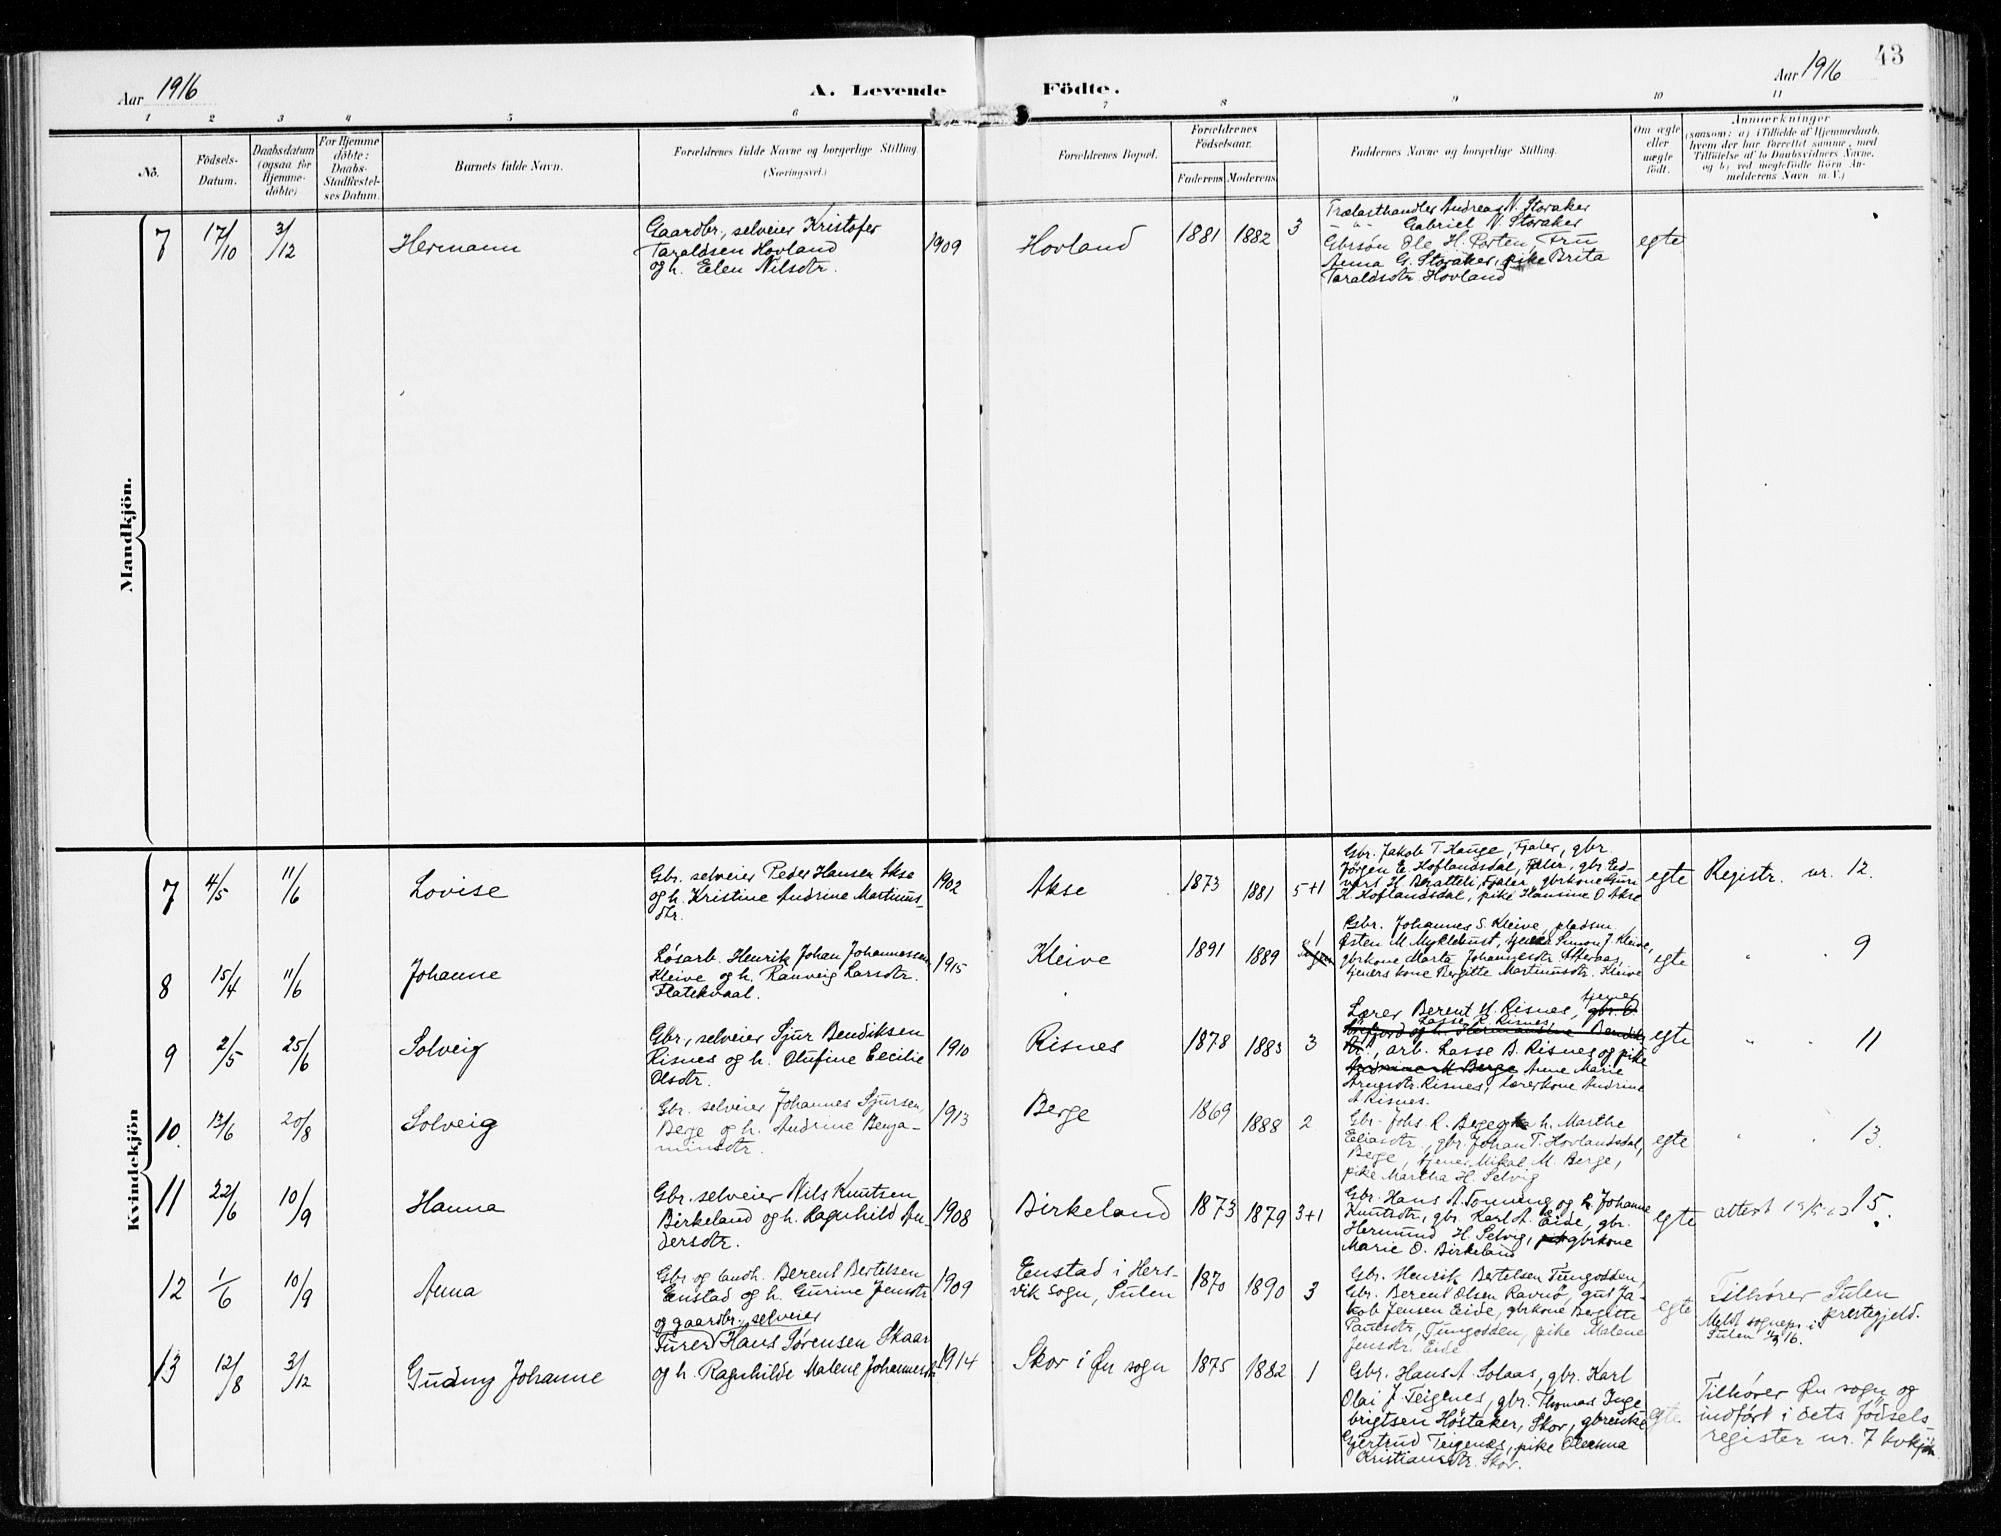 Aar 1916
A. Levende
Födte.
Aar 1916
43
1 2 3 4 5 6 7 8 9 10 11
No.
Födsels-
Datum.
Daabsdatum
(ogsaa for
Hjemme-
döbte)
For Hjemme
döbte:
Daabs-
Stadfæstel-
ses Datum.
Barnets fulde Navn.
Forældrenes fulde Navne og borgerlige Stilling.
(Næringsvei.)
Forældrenes Bopæl.
Forældrenes
Födselsaar.
Faderens Moderens
Faddernes Navne og borgerlige Stilling.
Om ægte
eller
uægte
født.
Anmærkninger
(saasom: a) i Tilfælde af Hjemmedaab,
hvem der har forrettet samme, med
Tilföielse af to Daabsvidners Navne,
og b) ved uægtefödte Börn An-
melderens Navn m. V.)
Mandkjön.
7 17/10 3/12 Hermann
Gaardbr., selveier Kristofer
Taraldsen Hovland
og h. Elen Nilsdtr.
1909 Hovland 1881 1882 3
Trælasthandler Andreas N. Storaker
" " Gabriel N. Storaker
Gbrsøn Ole H. Porten, Fru
Anna G. Storaker, pike Brita
Taraldsdtr. Hovland
egte
Kvindekjön
7 4/5 11/6 Lovise
Gbr. selveier Peder Hansen Akse
og h. Kristine Andrine Martinus-
dtr.
1902 Akse 1873 1881 5+1
Gbr. Jakob T. Hauge, Fjaler, gbr.
Jørgen E. Hoflandsdal, Fjaler, gbr. Ed-
vard H. Bratteli, Fjaler, gbrkone Guri
K. Hoflandsdal, pike Hansine O. Akse
egte Registr. nr. 12.
8 15/4 11/6 Johanne
Løsarb. Henrik Johan Johannessen
Kleive og h. Ranveig Larsdtr.
Flatekvaal.
1915 Kleive 1891 1889 1
Gbr. Johannes S. Kleive, pladsm.
Østen M. Myklebust, tjener Simon J. Kleive,
gbrkone Marta Johannesdtr. Afteraas,
tjenerskone Bergitte Martinusdtr. Kleive
egte " . 9
9 2/5 25/6 Solveig
Gbr., selveier Sjur Bendiksen
Risnes og h. Olufine Cecilie
Olsdtr.
1910 Risnes 1878 1883 3
Lærer Berent M. Risnes, tjener
Lasse R. Risnes
arb. Lasse A. Risnes og pike
Anne Marie
Arnesdtr. Risnes, lærerkone Andrine
A Risnes.
egte " . 11
10 13/6 20/8 Solveig
Gbr. selveier Johannes Sjursen
Berge og h. Andrine Benja-
minsdtr.
1913 Berge 1869 1888 2
Gbr. Johs. R. Berge og h. Marthe
Eliasdtr., gbr. Johan T. Hovlandsdal,
Berge, tjener Mikal M. Berge,
pike Martha H. Selvig
egte " . 13.
11 22/6 10/9 Hanna
Gbr. selveier Nils Knutsen
Birkeland og h. Ragnhild An-
dersdtr.
1908 Birkeland 1873 1879 3+1
Gbr. Hans A. Tonning og h. Johanne
Knutsdtr., gbr. Karl A. Eide, gbr.
Hermund H. Selvig, gbrkone
Marie O. Birkeland
egte attest 15.
12 1/6 10/9 Anna
Gbr. og landh. Berent Bertelsen
Enstad og h. Gurine Jensdtr
1909 Enstad i Hers-
vik sogn, Sulen 1870 1890 3
Gbr. Henrik Bertelsen Tungodden,
Gbr. Berent Olsen Ravnø, gut Ja-
kob Jensen Eide, gbrkone Bergitte
Paulsdtr., Tungodden, pike Malene
Jensdtr. Eide
egte
Tilhører Sulen
prestegjeld.
Meldt sognepr. i
Sulen 16.
13 12/8 3/12 Gudny Johanne
og gaardbr., selveier
Furer Hans Sørensen Skaar
og h. Ragnhilde Malene Johannesdtr
1914 Skor i Øn sogn 1875 1882 1
Gbr. Hans A. Solaas, gbr. Karl
Olai J. Teigenes, gbr. Thomas Inge-
brigtsen Høstaker, Skor, gbrenke
Gjertrud Teigenes, pike Oleanna
Kristiansdtr. Skor.
egte
Tilhører Øn sogn og
indført i dets fødsels-
register nr. 7 kvkjøn